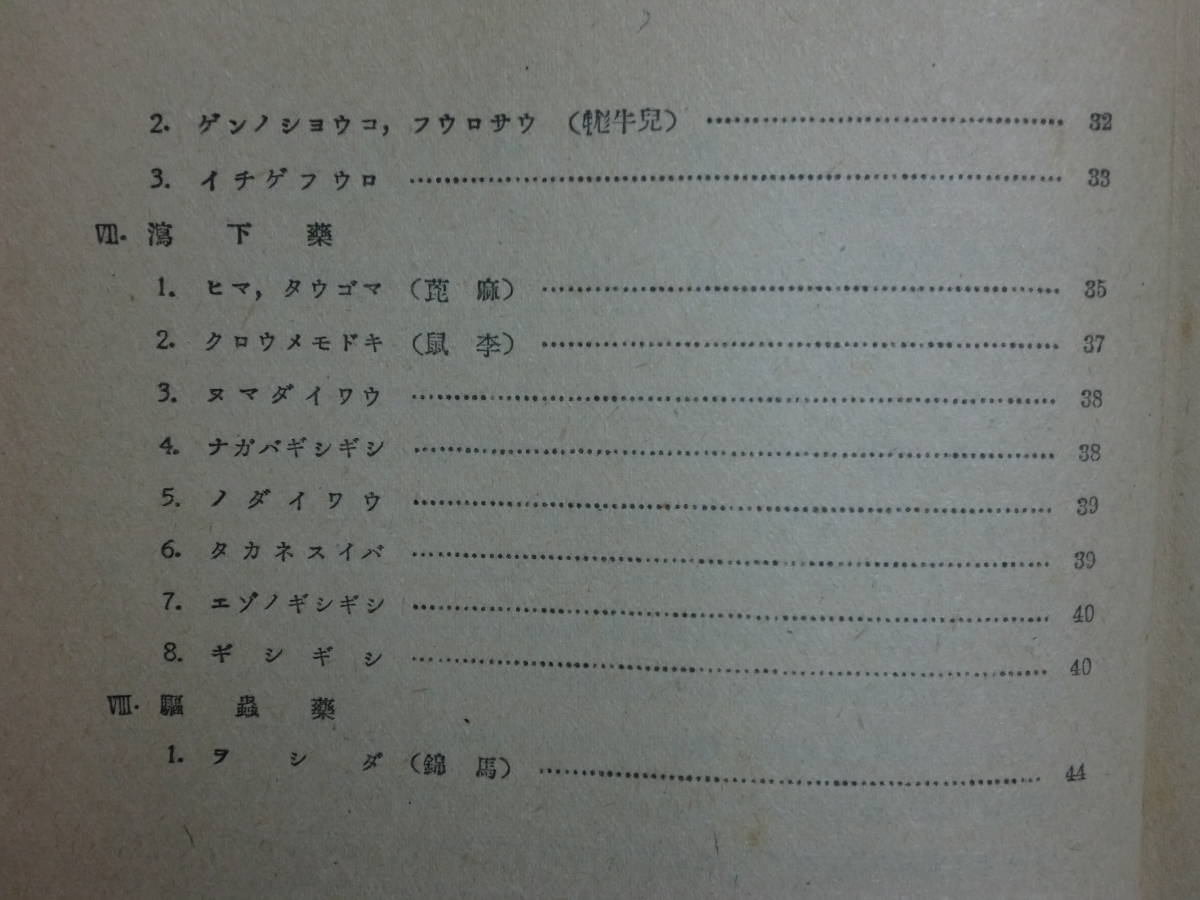 2. ゲンノシヨウコ, フウロサウ (牻牛兒) 32
3. イチゲフウロ 33
Ⅶ. 瀉下藥
1. ヒマ, タウゴマ (萞麻) 35
2. クロウメモドキ (鼠李) 37
3. ヌマダイワウ 38
4. ナガバギシギシ 38
5. ノダイワウ 39
6. タカネスイバ 39
7. エゾノギシギシ 40
8. ギシギシ 40
Ⅷ. 驅蟲藥
1. ヲシダ (錦馬) 44